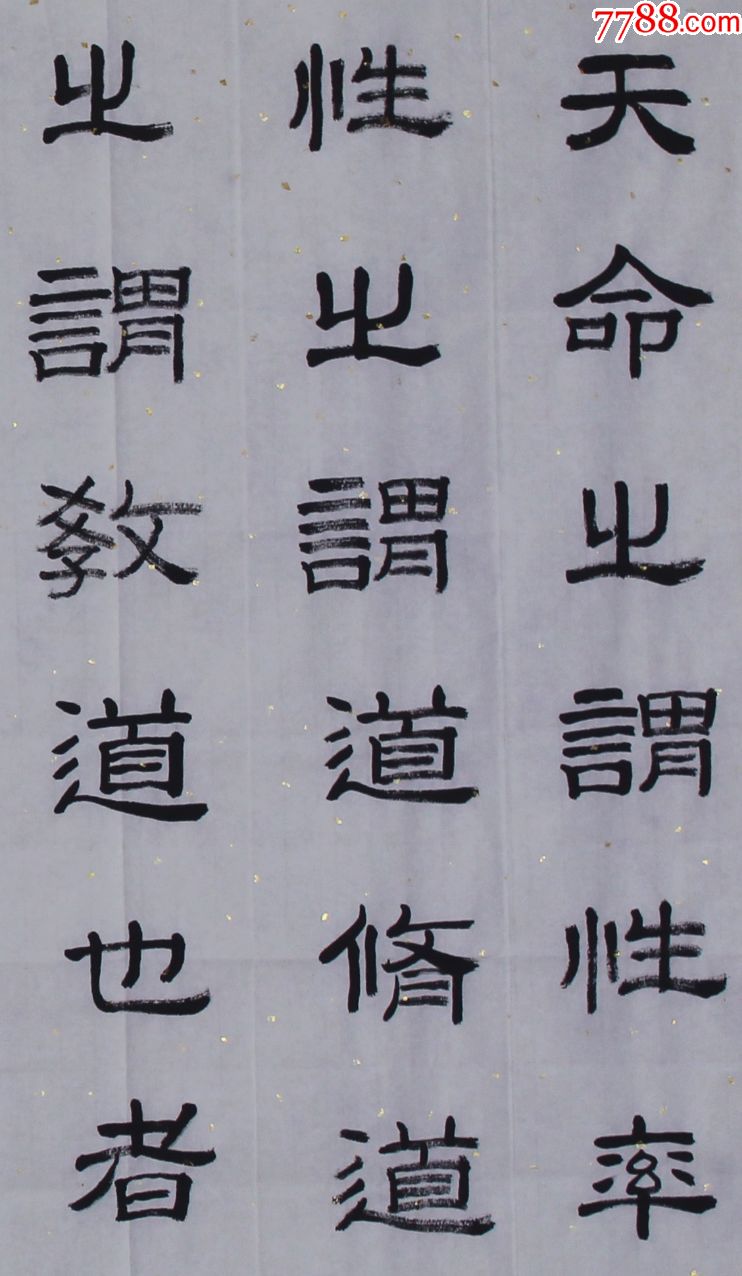 7788.com
天命之謂性率
性之謂道脩道
之謂教道也者